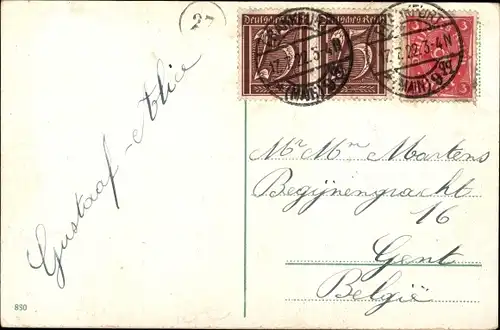 27
Deutsches Reich
Deutsches Reich
25
25
3
3
(MAIN)
(MAIN)
Gustaaf - Alice
Mr Mme Martens
Begijnengracht
16
Gent
België
830